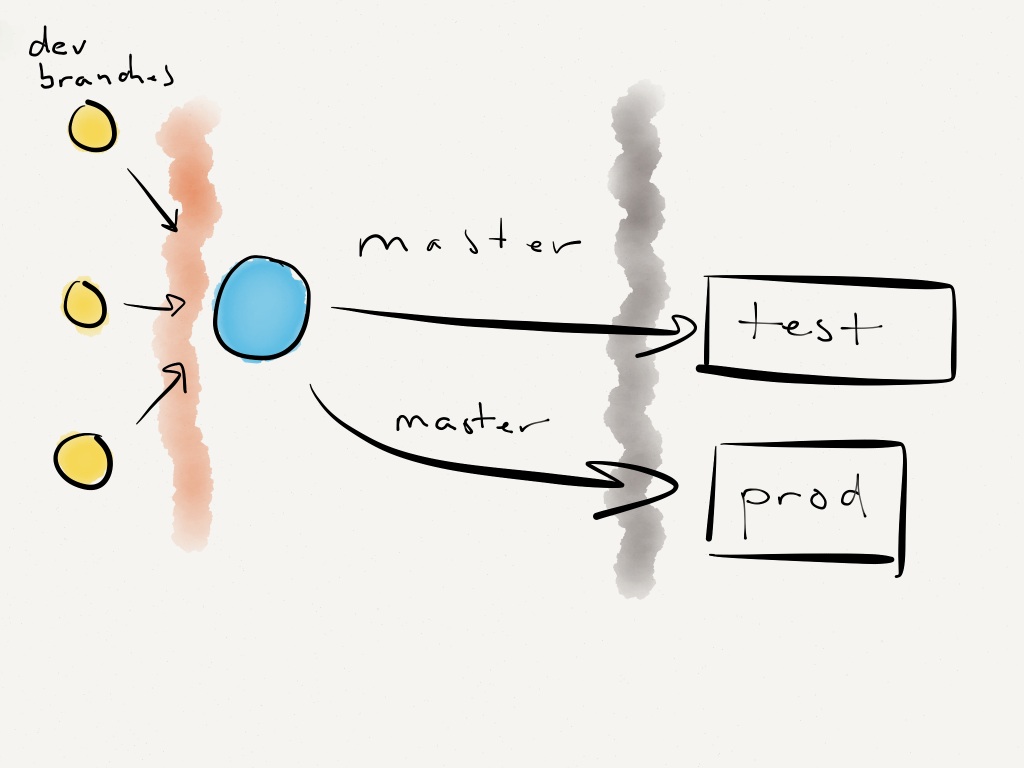 dev
branches
master
test
master
prod